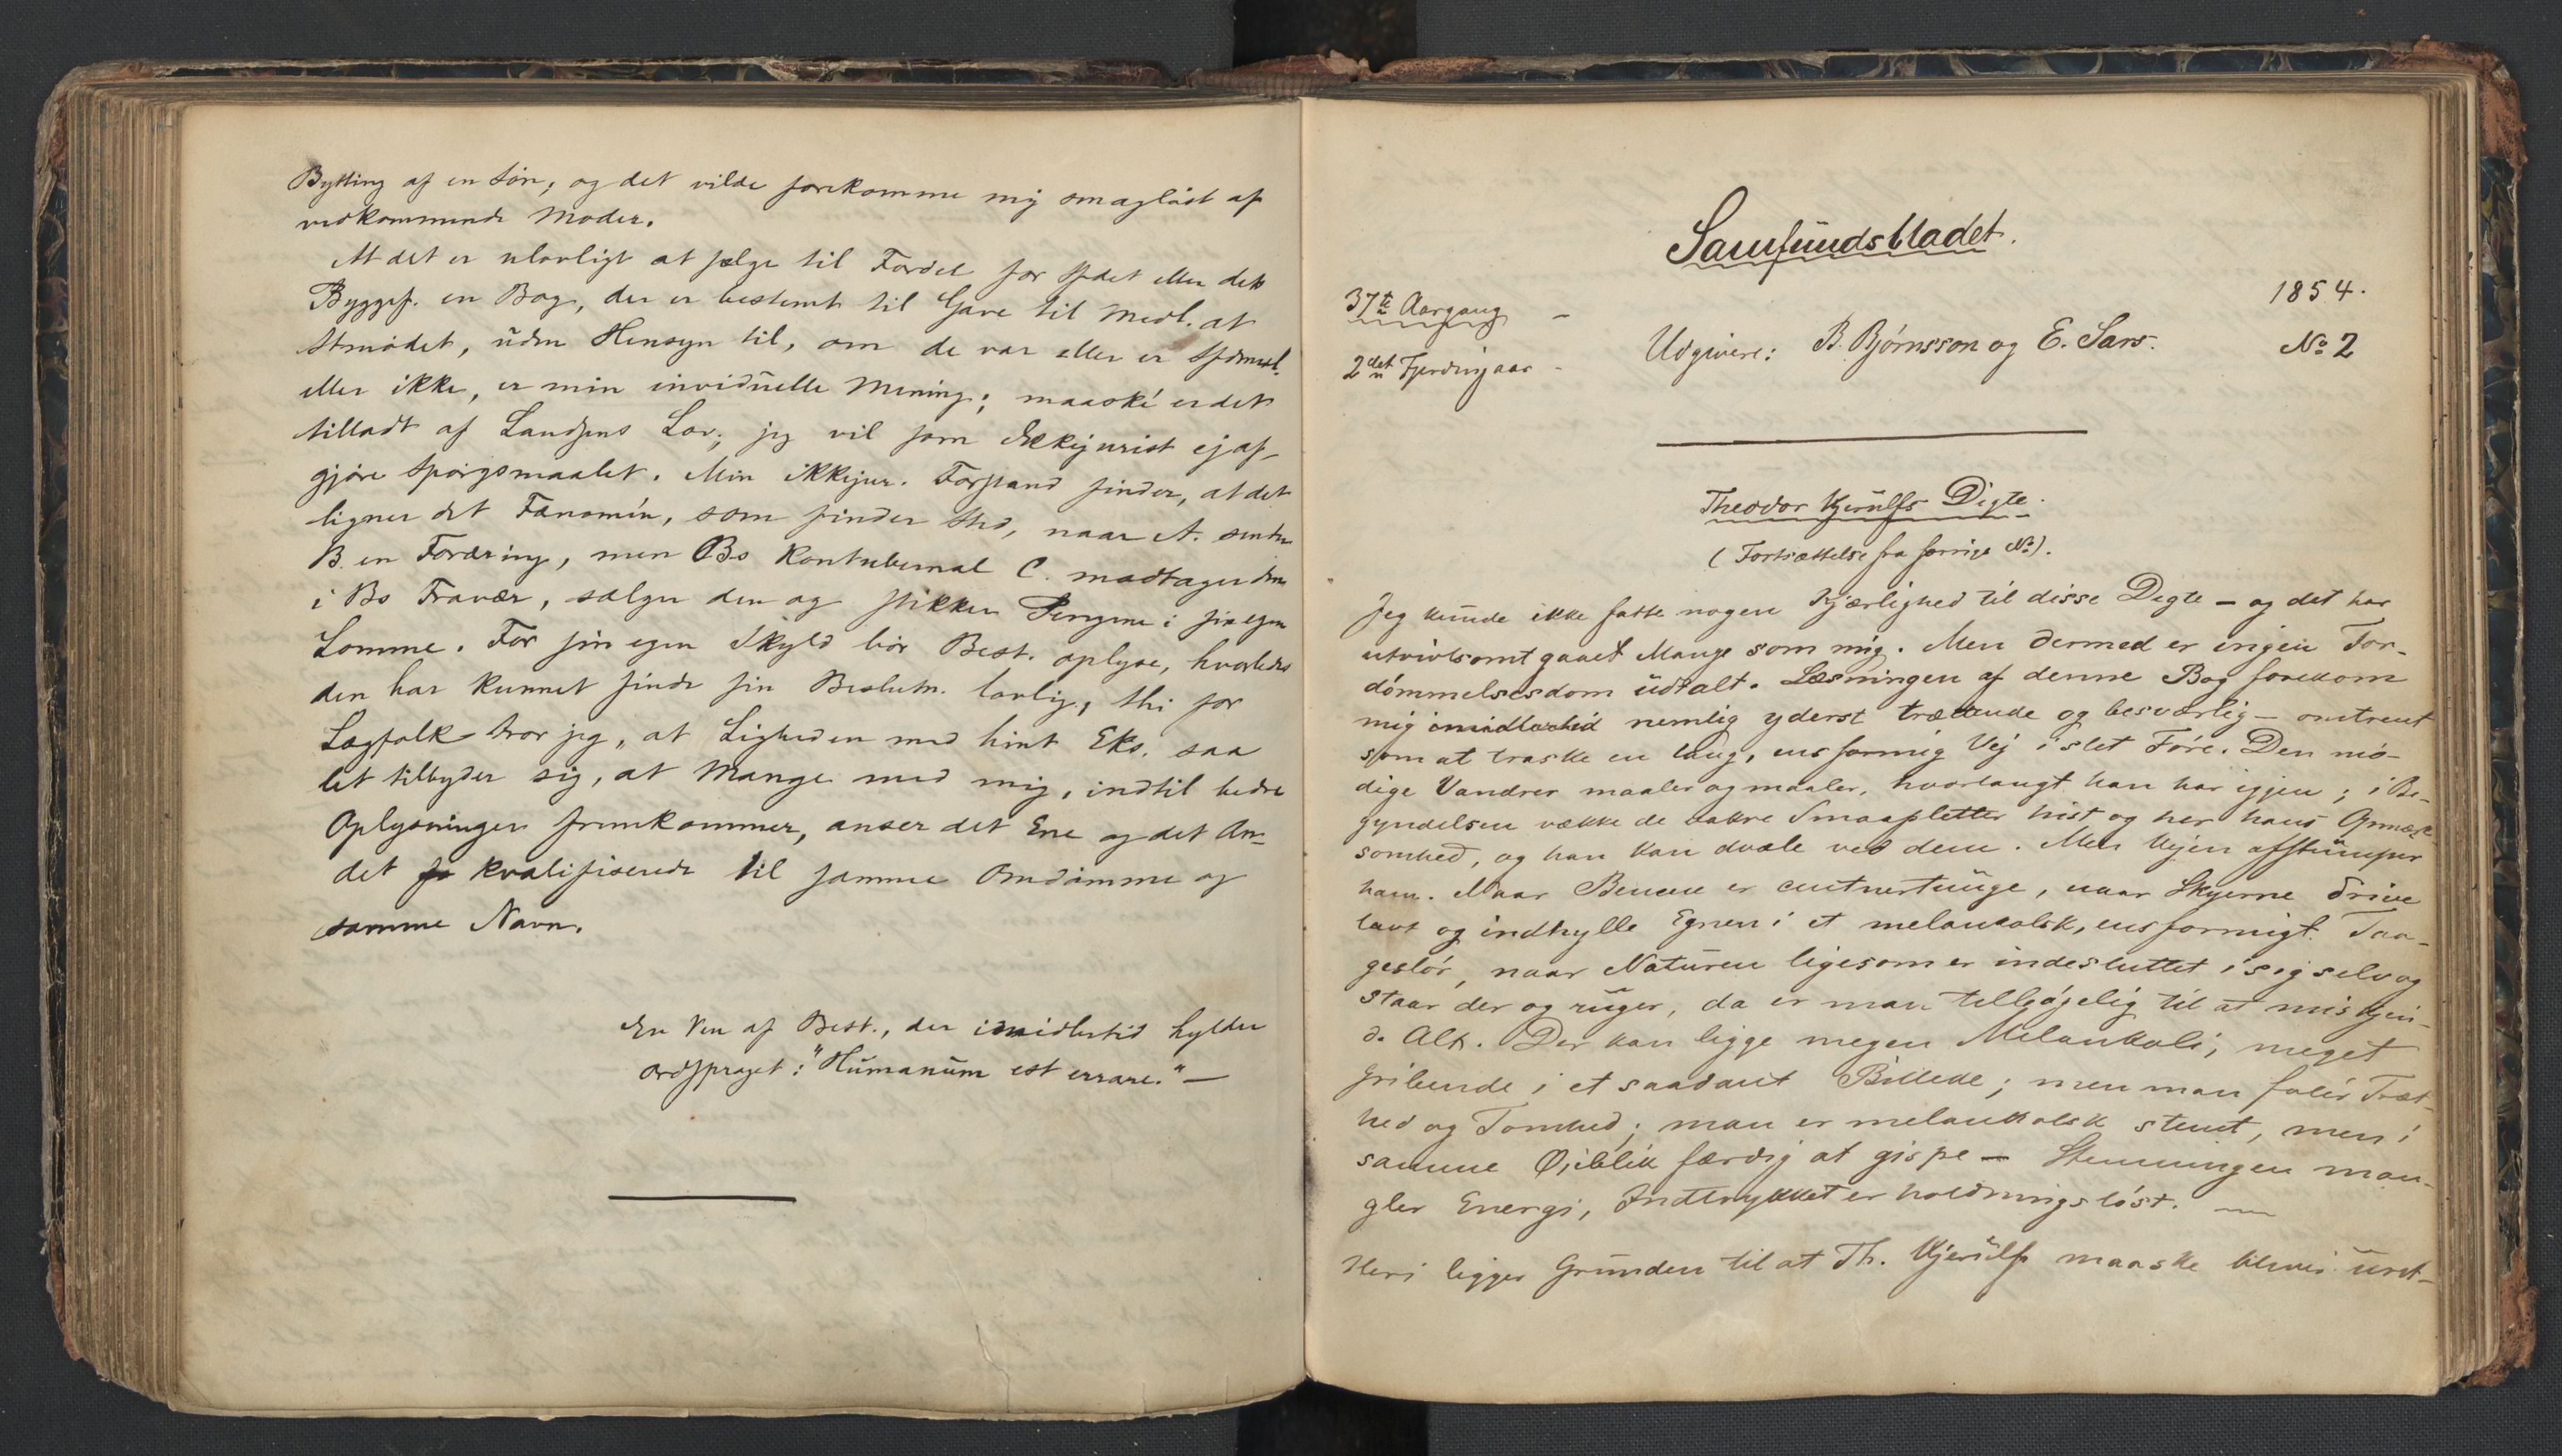 Bytting af en Søn, og det vilde forekomme mig smagløst af
vedkommende Moder.
At det er ulovligt at sælge til Fordel for Sfdet eller dets
Byggef. en Bog, der er bestemt til Gave til Medl. af
Stmødet, uden Hensyn til, om de var eller er Sfdmedl.
eller ikke, er min inviduelle Mening; maaské er det
tilladt af Landsens Lov; jeg vil som Ikkejurist ej af-
gjøre Spørgsmaalet. Min ikkejur. Forstand finder, at det
ligner det Fænomén, som finder Sted, naar A. sender
B. en Foræring, men Bs Kontubernal C. modtager den
i Bs Fravær, sælger den og stikker Pengene i sin egen
Lomme. For sin egen Skyld bør Best. oplyse, hvorledes
den har kunnet finde sin Beslutn. lovlig, thi for
Lægfolk tror jeg, at Ligheden med hint Eks. saa
let tilbyder sig, at Mange med mig, indtil bedre
Oplysninger fremkommer, anser det Ene og det An-
det kvalifiserede til samme Omdømme og
samme Navn.
En Ven af Best., der imidlertid hylder
Ordsproget: "Humanum est errare." —
Samfundsbladet.
1854.
37te Aargang —
Udgivere: B. Bjørnsson og E. Sars.
No 2
2det Fjerdingaar —
Theodor Kjerulfs Digte.
(Fortsættelse fra forrige No).
Jeg kunde ikke fatte nogen Kjærlighed til disse Digte — og det har
utvivlsomt gaaet Mange som mig. Men dermed er ingen For-
dømmelsesdom udtalt. Læsningen af denne Bog forekom
mig imidlertid nemlig yderst trættende og besværlig — omtrent
som at traske en lang, ensformig Vej i slet Føre. Den mø-
dige Vandrer maaler og maaler, hvorlangt han har igjen; i Be-
gyndelsen vække de vakre Smaapletter hist og her hans Opmærk-
somhed, og han kan dvæle ved dem. Men Vejen afstumper
ham. Naar Benene er centnertunge, naar Skyerne drive
lavt og indhylle Egnen i et melankolsk, ensformigt Taa-
geslør, naar Naturen ligesom er indesluttet i sig selv og
staar der og ruger, da er man tilbøjelig til at miskjen-
de Alt. Der kan ligge megen Melankoli, meget
gribende i et saadant Billede; men man føler Træt-
hed og Tomhed; man er melankolsk stemt, men i
samme Øjeblik færdig at gispe — Stemningen man-
gler Energi, Indtrykket er holdningsløst. —
Heri ligger Grunden til at Th. Kjerulf maaske bliver uret-